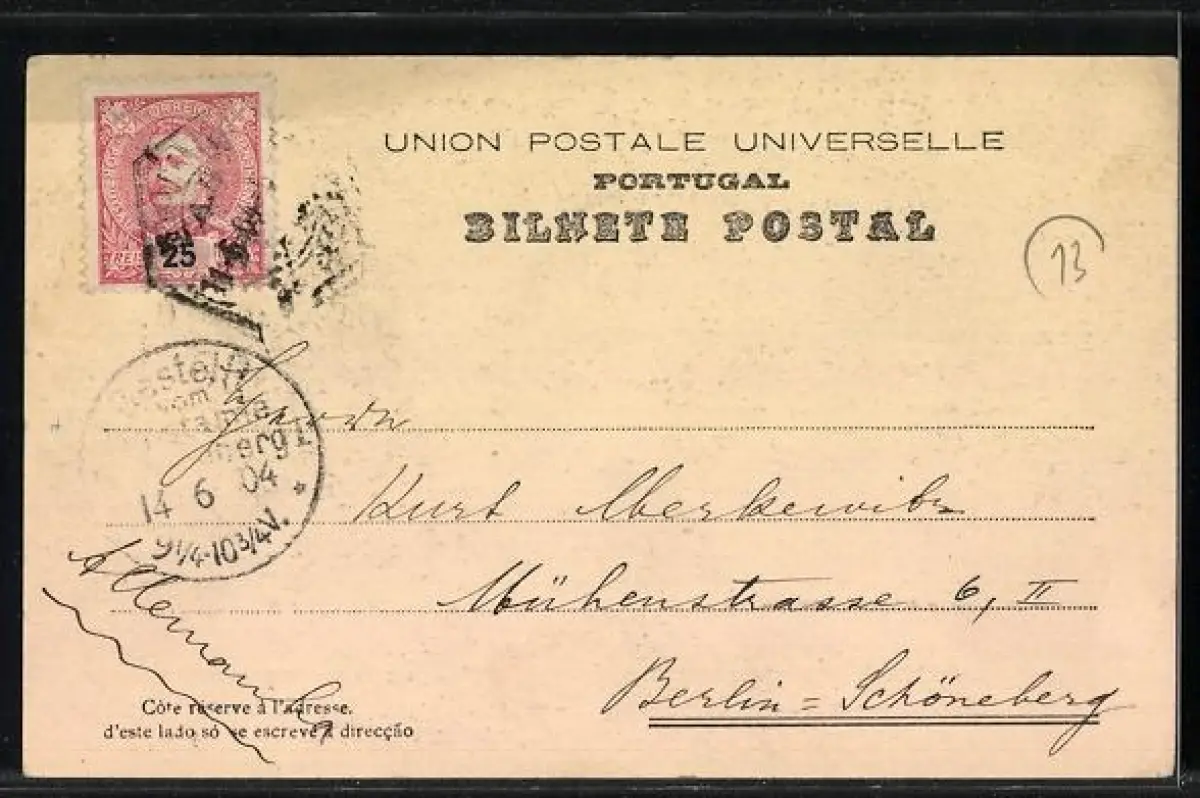 CORREIOS
REIS 25
UNION POSTALE UNIVERSELLE
PORTUGAL
BILHETE POSTAL
13
Bestellt
vom
14 6 04
9 1/4-10 3/4 V.
Herrn
Kurt
Mühenstrasse 6, II
Berlin = Schöneberg
Allemanha
Côte réserve à l'adresse.
d'este lado só se escreve a direcção